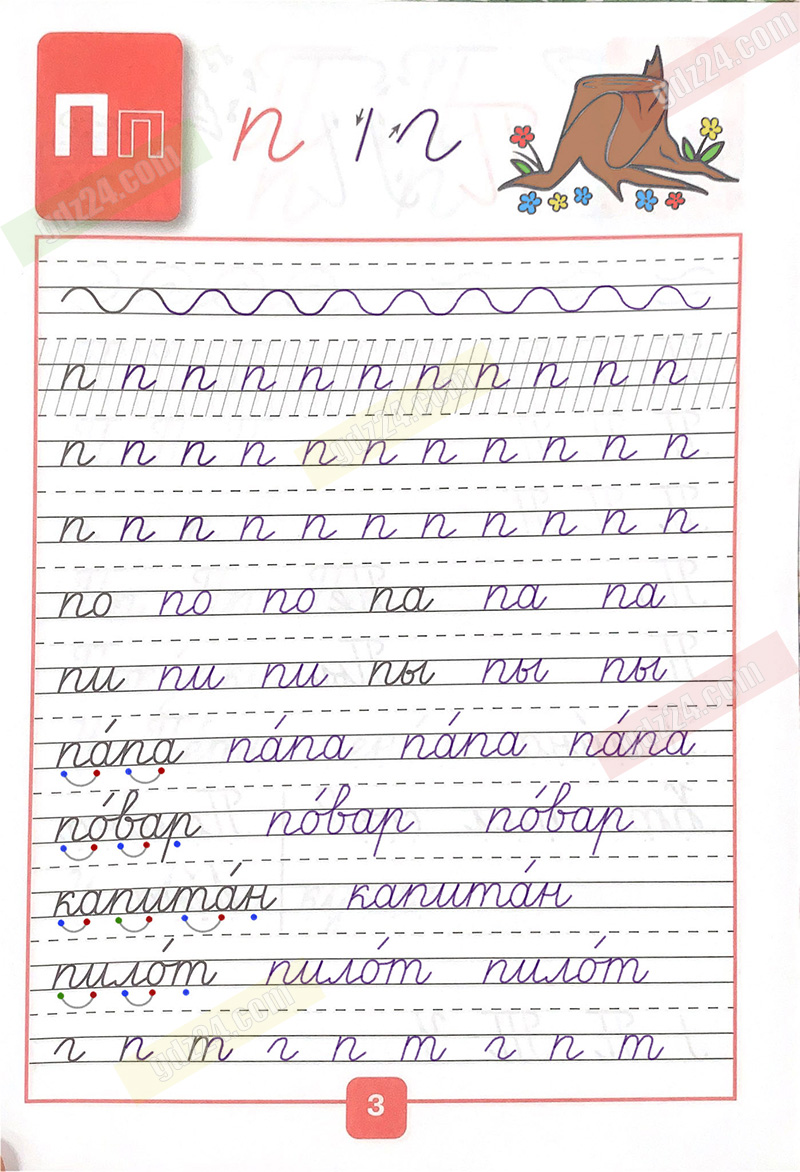 П п п
gdz24.com
gdz24.com
п п п п п п п п п п п
п п п п п п п п п п п
gdz24.com
п п п п п п п п п п п
по по по па па па
пи пи пи пы пы пы
gdz24.com
па́па па́па па́па па́па
по́вар по́вар по́вар
капита́н капита́н
пило́т пило́т пило́т
gdz24.com
г п т г п т г п т
3